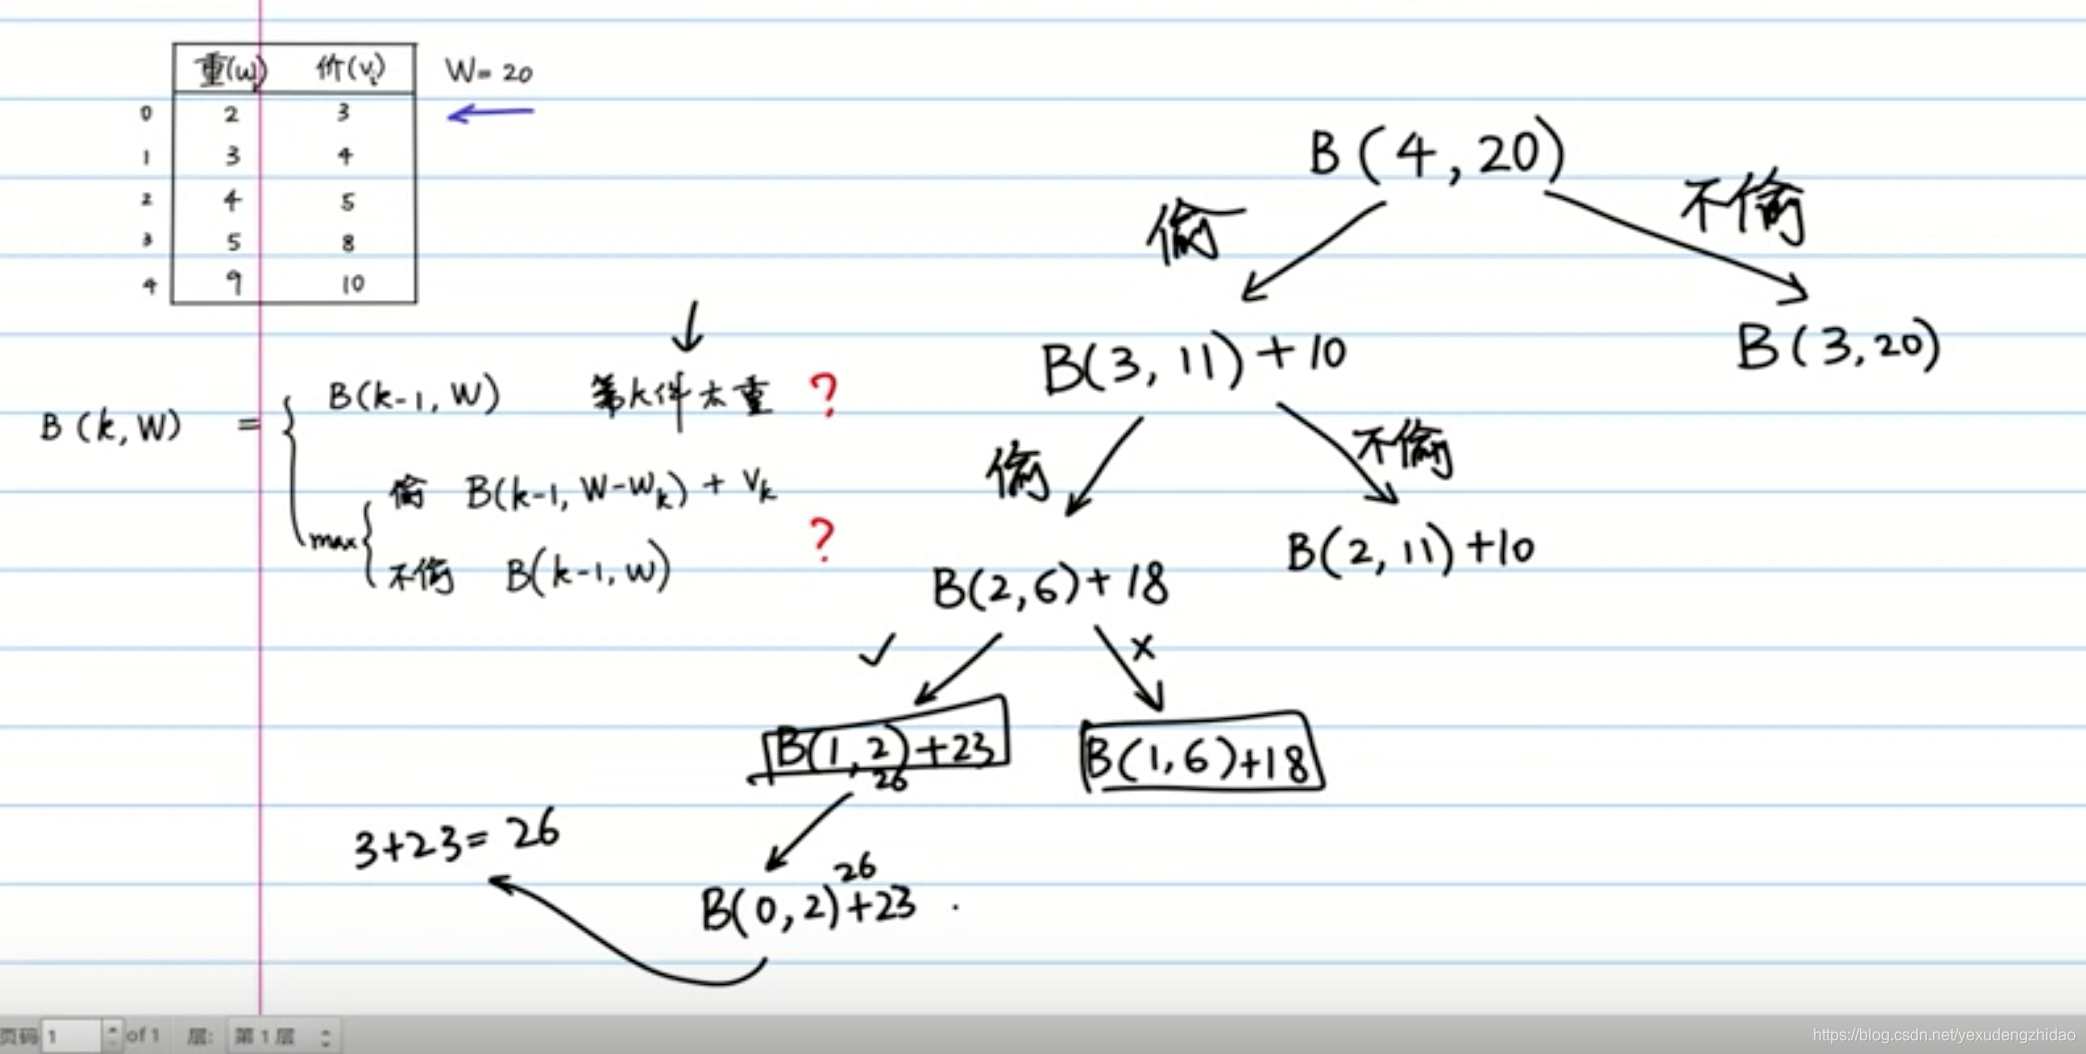 重(wᵢ) 价(vᵢ) W=20
0 2 3
1 3 4
2 4 5
3 5 8
4 9 10
B(k,W) =
B(k-1,W) 第k件太重 ?
max
偷 B(k-1,W-wₖ)+vₖ
?
不偷 B(k-1,W)
B(4,20)
偷 不偷
B(3,11)+10 B(3,20)
偷 不偷
B(2,6)+18 B(2,11)+10
✓ ×
B(1,2)+23 B(1,6)+18
26
3+23=26
26
B(0,2)+23 .
页码 1 of 1 层: 第 1 层
https://blog.csdn.net/yexudengzhidao